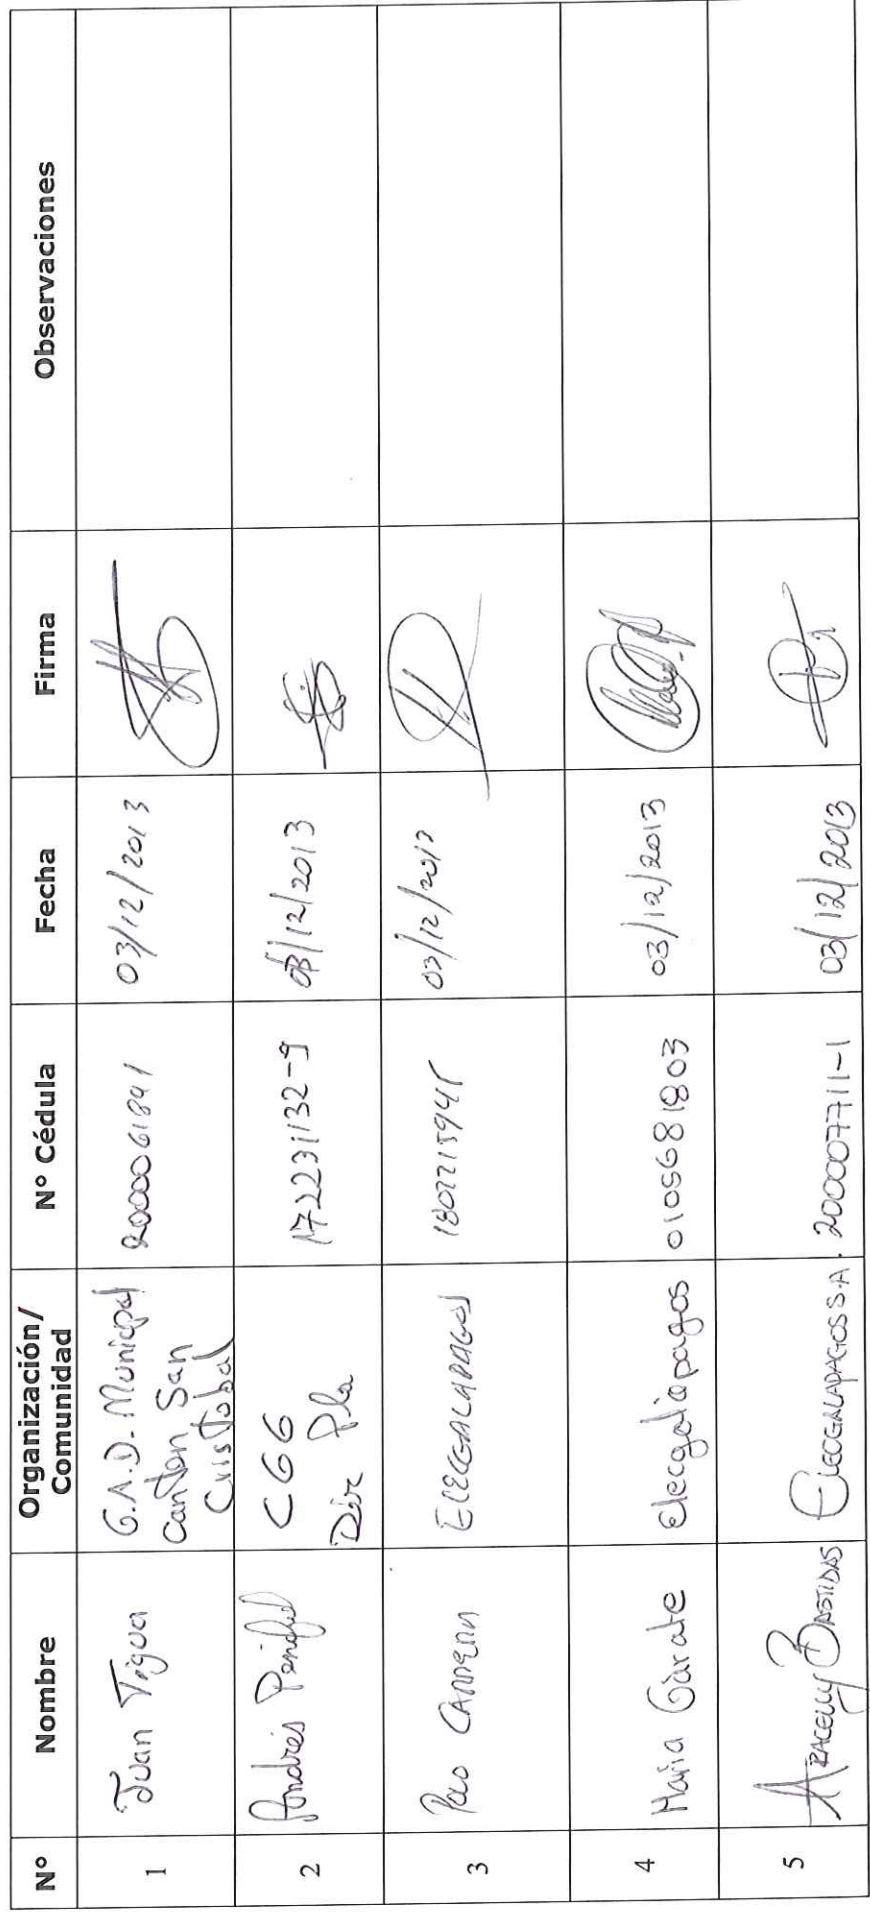 Nº Nombre Organización/ Comunidad Nº Cédula Fecha Firma Observaciones
1 Juan Tigua G.A.D. Municipal Canton San Cristobal 2000061841 03/12/2013
2 Andrés CGG Dir Pla 172231132-9 03/12/2013
3 ELECGALAPAGOS 03/12/2013
4 Maria Gárate Elecgalapagos 0105681803 03/12/2013
5 ARACELLY BASTIDAS ELECGALAPAGOS S.A. 200007711-1 03/12/2013